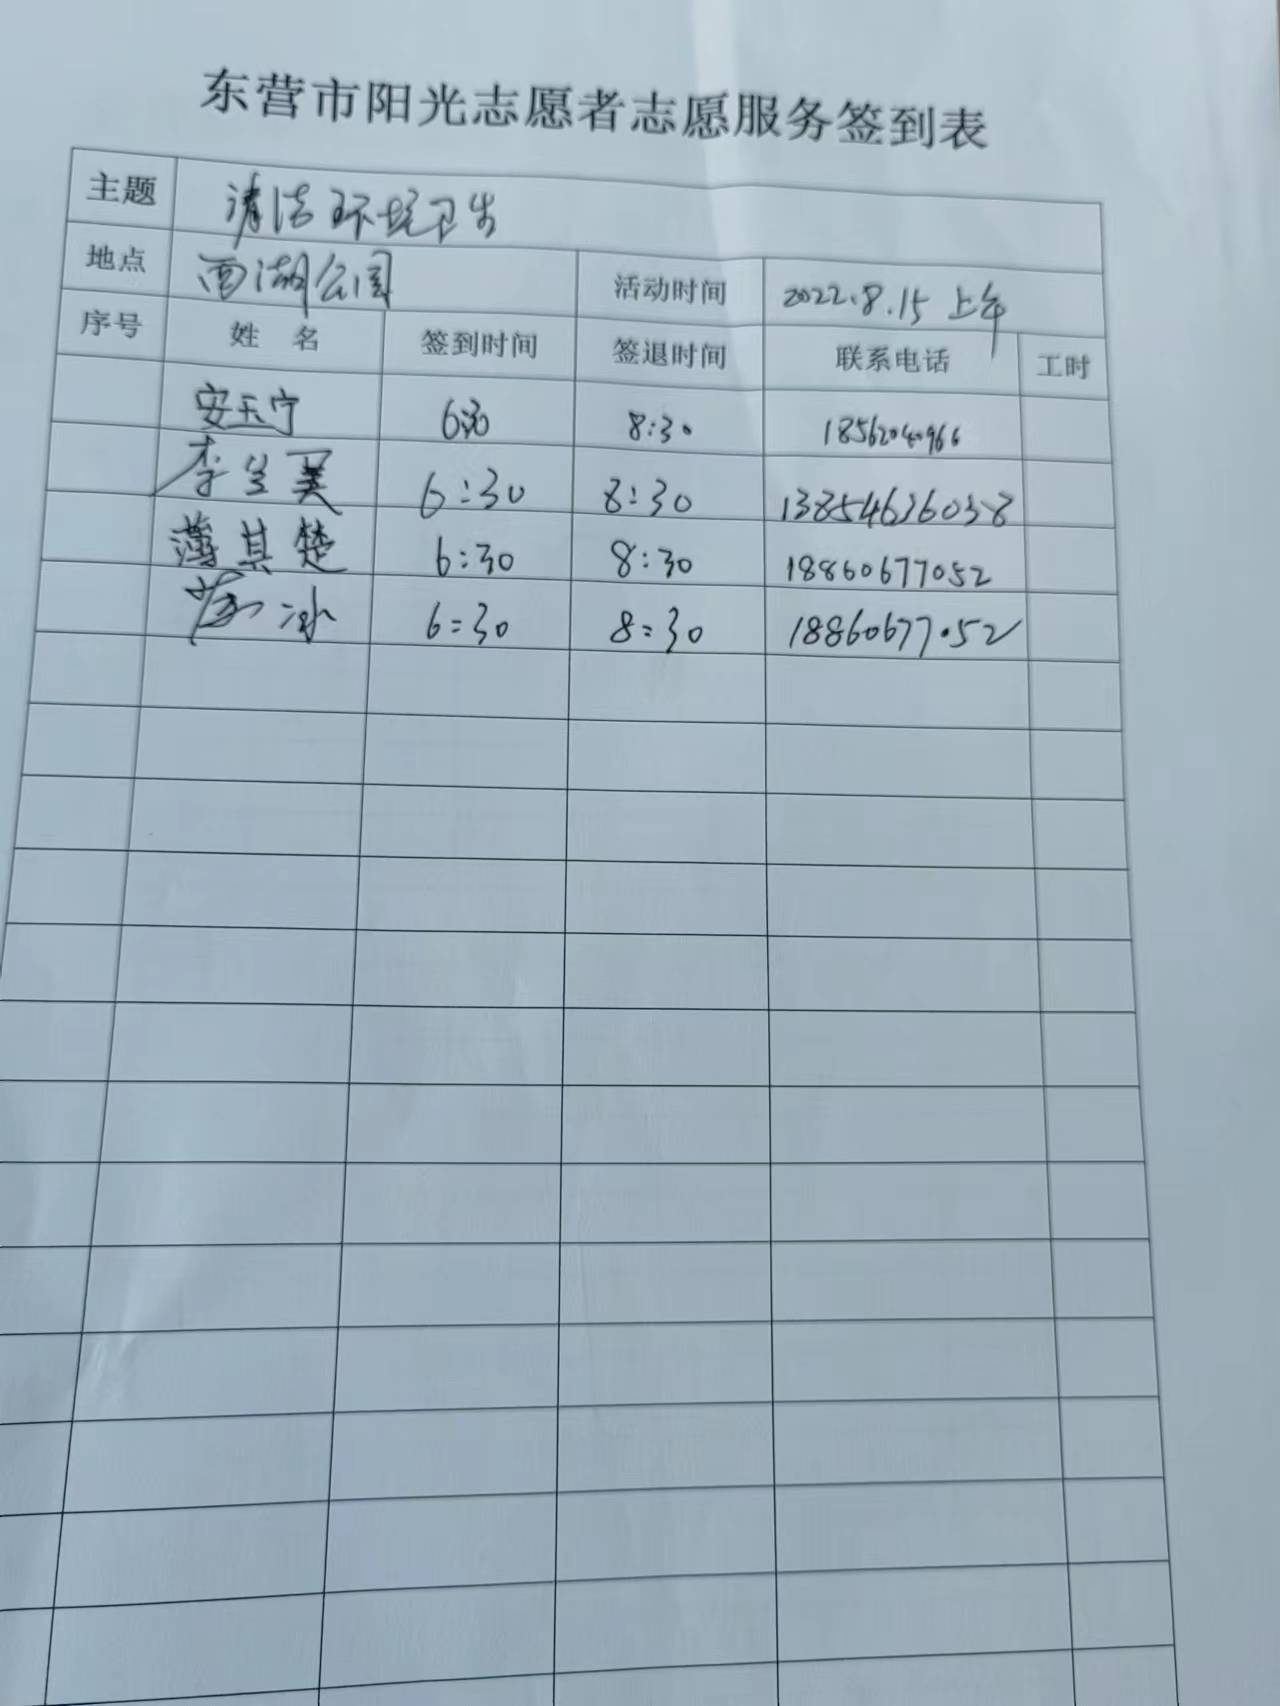 东营市阳光志愿者志愿服务签到表
主题 清洁环境卫生
地点 西湖公园 活动时间 2022.8.15 上午
序号 姓 名 签到时间 签退时间 联系电话 工时
安玉宁 6:30 8:30 18562040966
李兰美 6:30 8:30 13854636038
薄其楚 6:30 8:30 18860677052
冰 6:30 8:30 18860677052